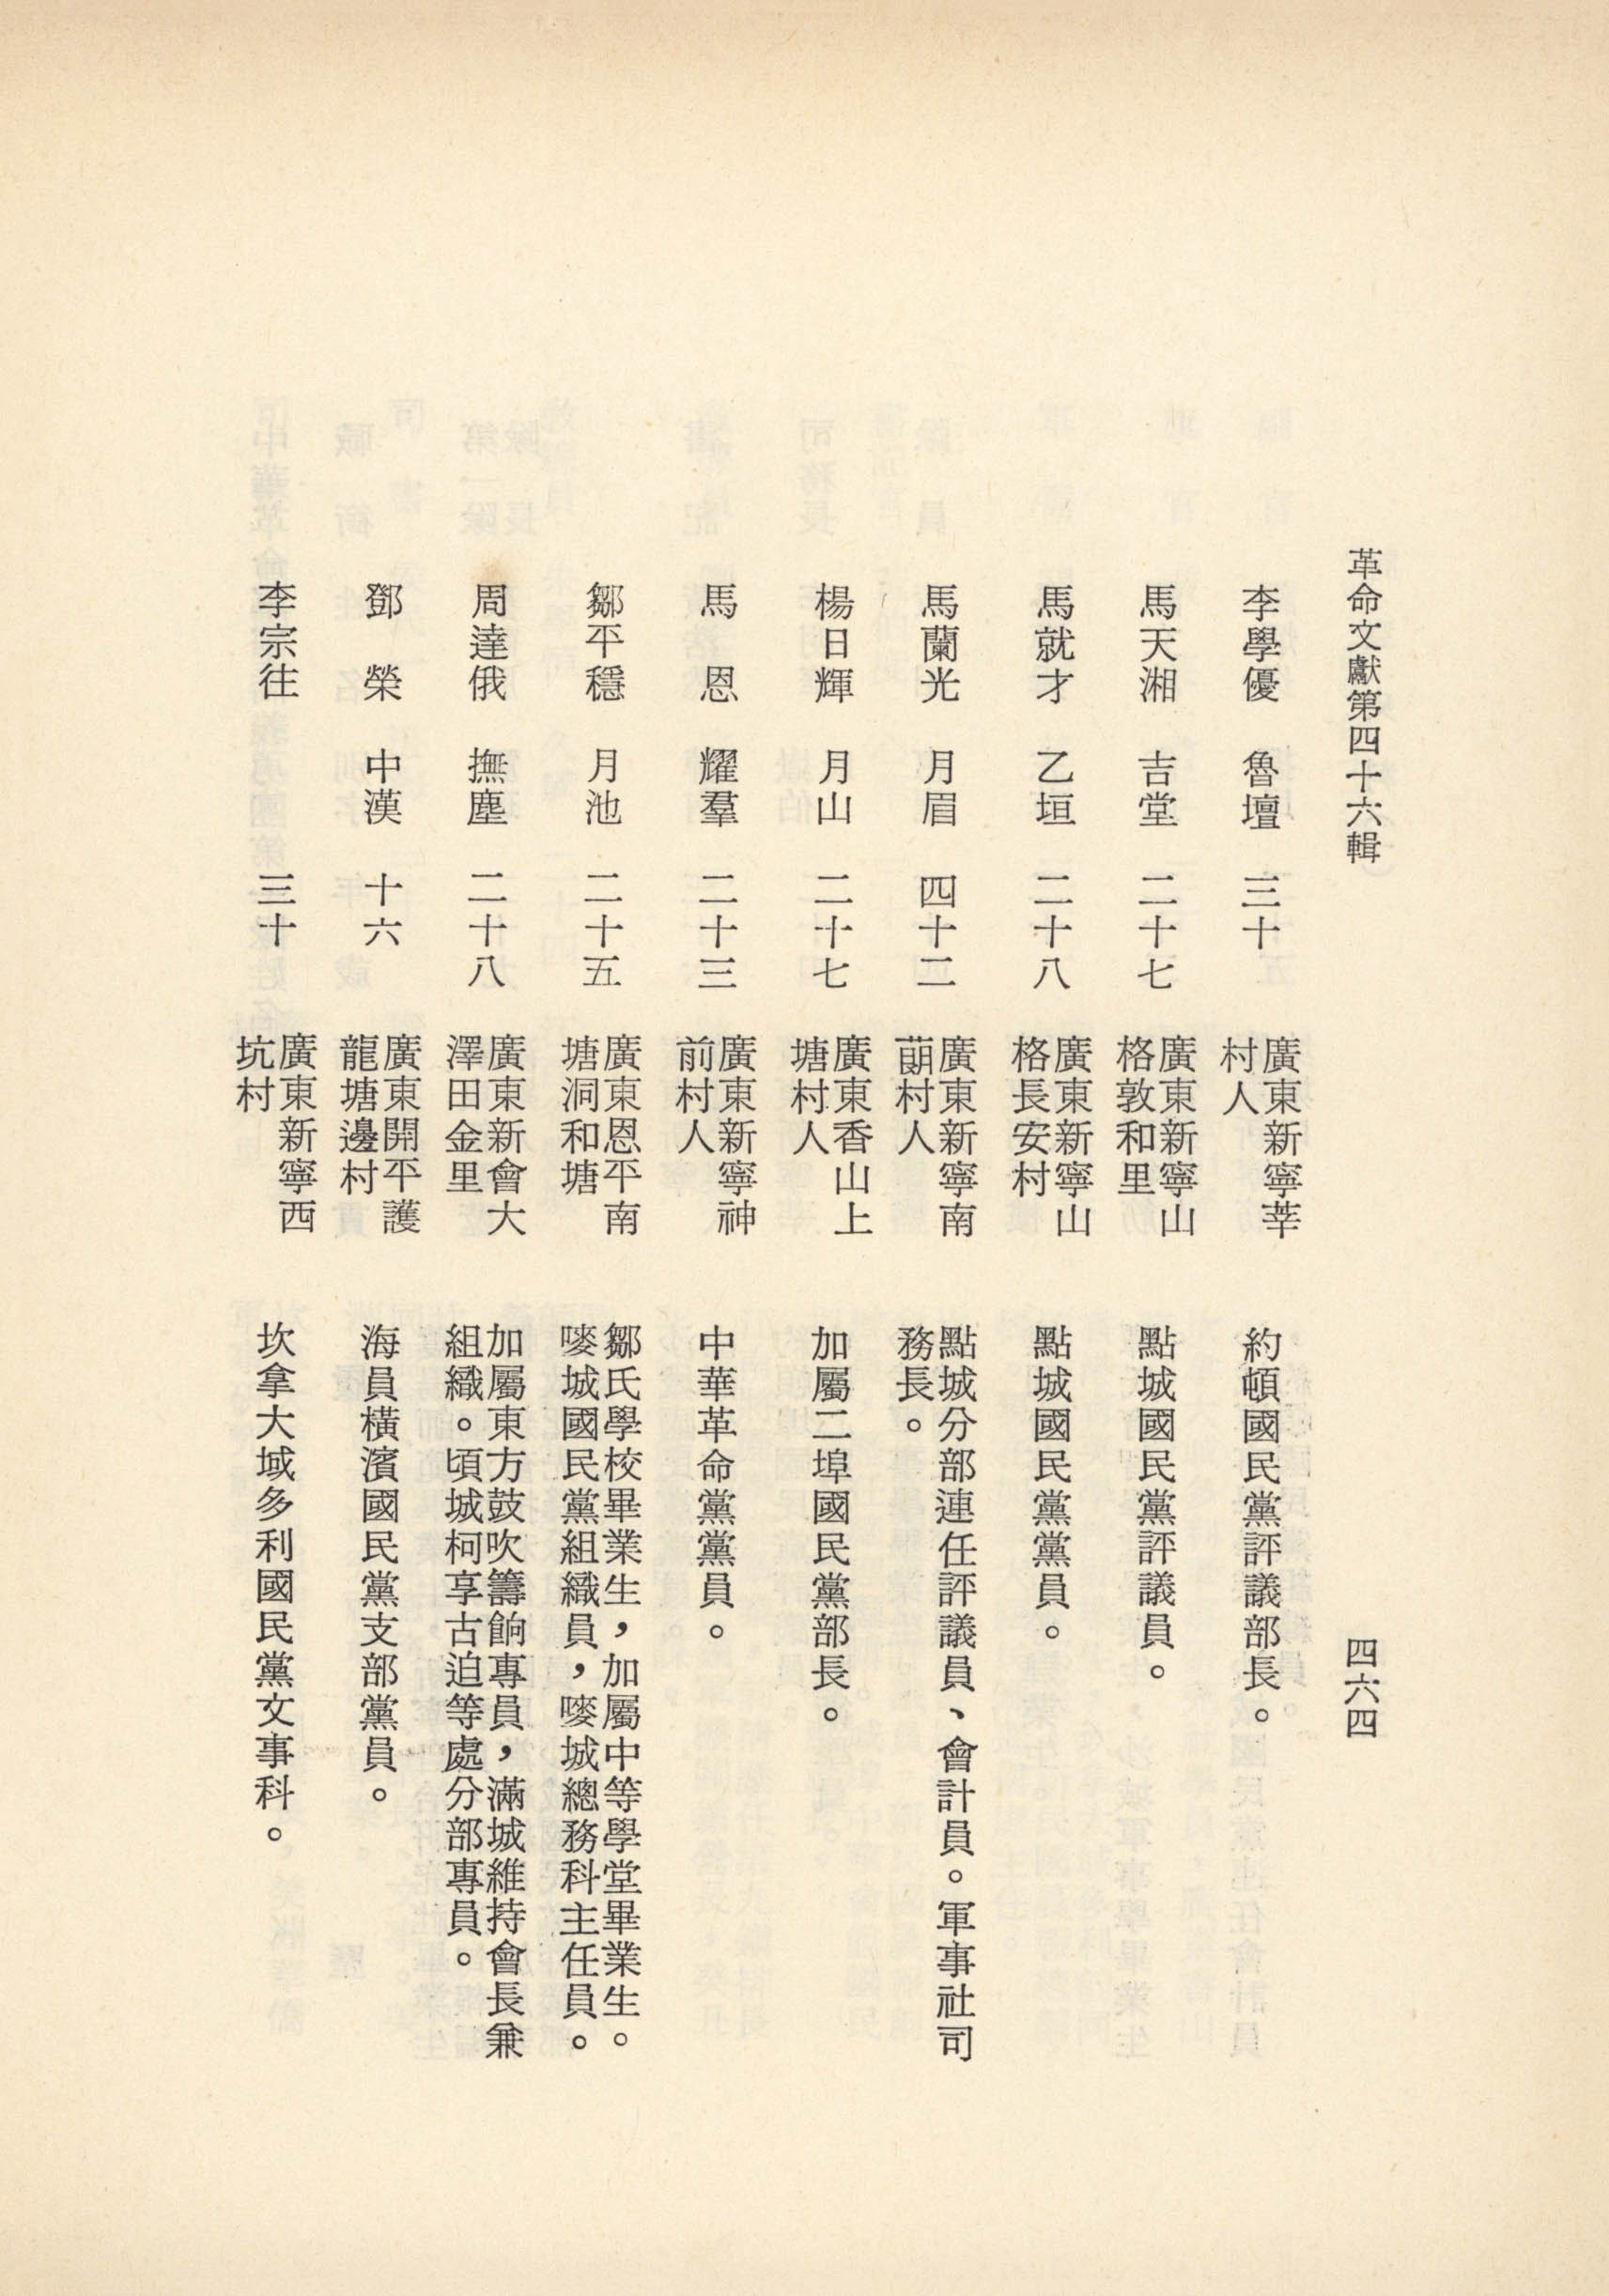 革命文獻第四十六輯
四六四
李學優 魯壇 三十 廣東新寧莘
村人
約頓國民黨評議部長。
馬天湘 吉堂 二十七 廣東新寧山
格敦和里
點城國民黨評議員。
馬就才 乙垣 二十八 廣東新寧山
格長安村
點城國民黨黨員。
馬蘭光 月眉 四十二 廣東新寧南
蓢村人
點城分部連任評議員、會計員。軍事社司
務長。
楊日輝 月山 二十七 廣東香山上
塘村人
加屬二埠國民黨部長。
馬 恩 耀羣 二十三 廣東新寧神
前村人
中華革命黨黨員。
鄒平穩 月池 二十五 廣東恩平南
塘洞和塘
鄒氏學校畢業生，加屬中等學堂畢業生。
唛城國民黨組織員，唛城總務科主任員。
周達俄 撫塵 二十八 廣東新會大
澤田金里
加屬東方鼓吹籌餉專員，滿城維持會長兼
組織。頃城柯享古迫等處分部專員。
鄧 榮 中漢 十六 廣東開平護
龍塘邊村
海員橫濱國民黨支部黨員。
李宗往 三十 廣東新寧西
坑村
坎拿大域多利國民黨文事科。